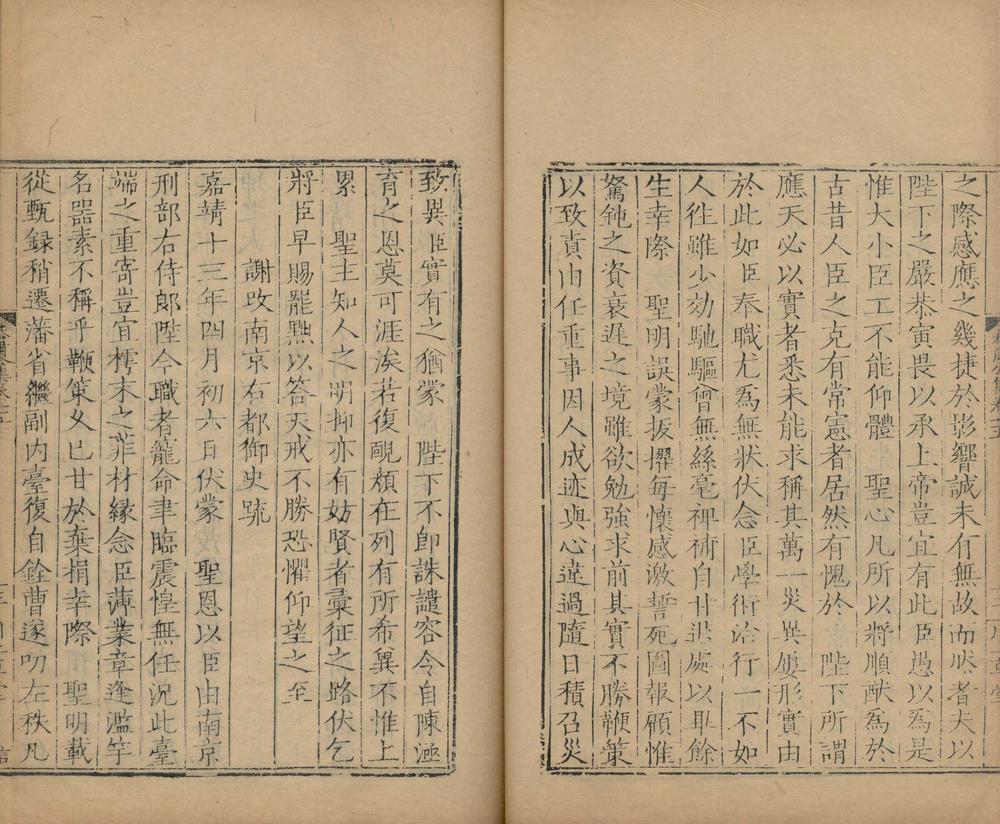 之際感應之幾捷於影響誠未有無故而然者夫以
陛下之嚴恭寅畏以承上帝豈宜有此臣愚以為是
惟大小臣工不能仰體 聖心凡所以將順猷為於
古昔人臣之克有常憲者居然有愧於 陛下所謂
應天必以實者悉未能求稱其萬一災異屢形實由
於此如臣奉職尤為無狀伏念臣學術治行一不如
人徃雖少効馳驅曾無絲毫裨補自甘退處以畢餘
生幸際 聖明誤蒙拔擢每懷感激誓死圖報顧惟
駑鈍之資衰遲之境雖欲勉強求前其實不勝鞭策
以致責由任重事因人成迹與心違過隨日積召災
致異臣實有之猶蒙 陛下不即誅譴容令自陳涵
育之恩莫可涯涘若復靦顏在列有所希兾不惟上
累 聖主知人之明抑亦有妨賢者彙征之路伏乞
將臣早賜罷黜以答天戒不勝恐懼仰望之至
謝改南京右都御史疏
嘉靖十三年四月初六日伏蒙 聖恩以臣由南京
刑部右侍郎陞今職者寵命聿臨震惶無任況此臺
端之重寄豈宜樗末之菲材緣念臣薄業章逢濫竽
名器素不稱乎鞭策乆已甘於棄捐幸際 聖明載
從甄録稍遷藩省繼副内臺復自銓曹遂叨左秩凡